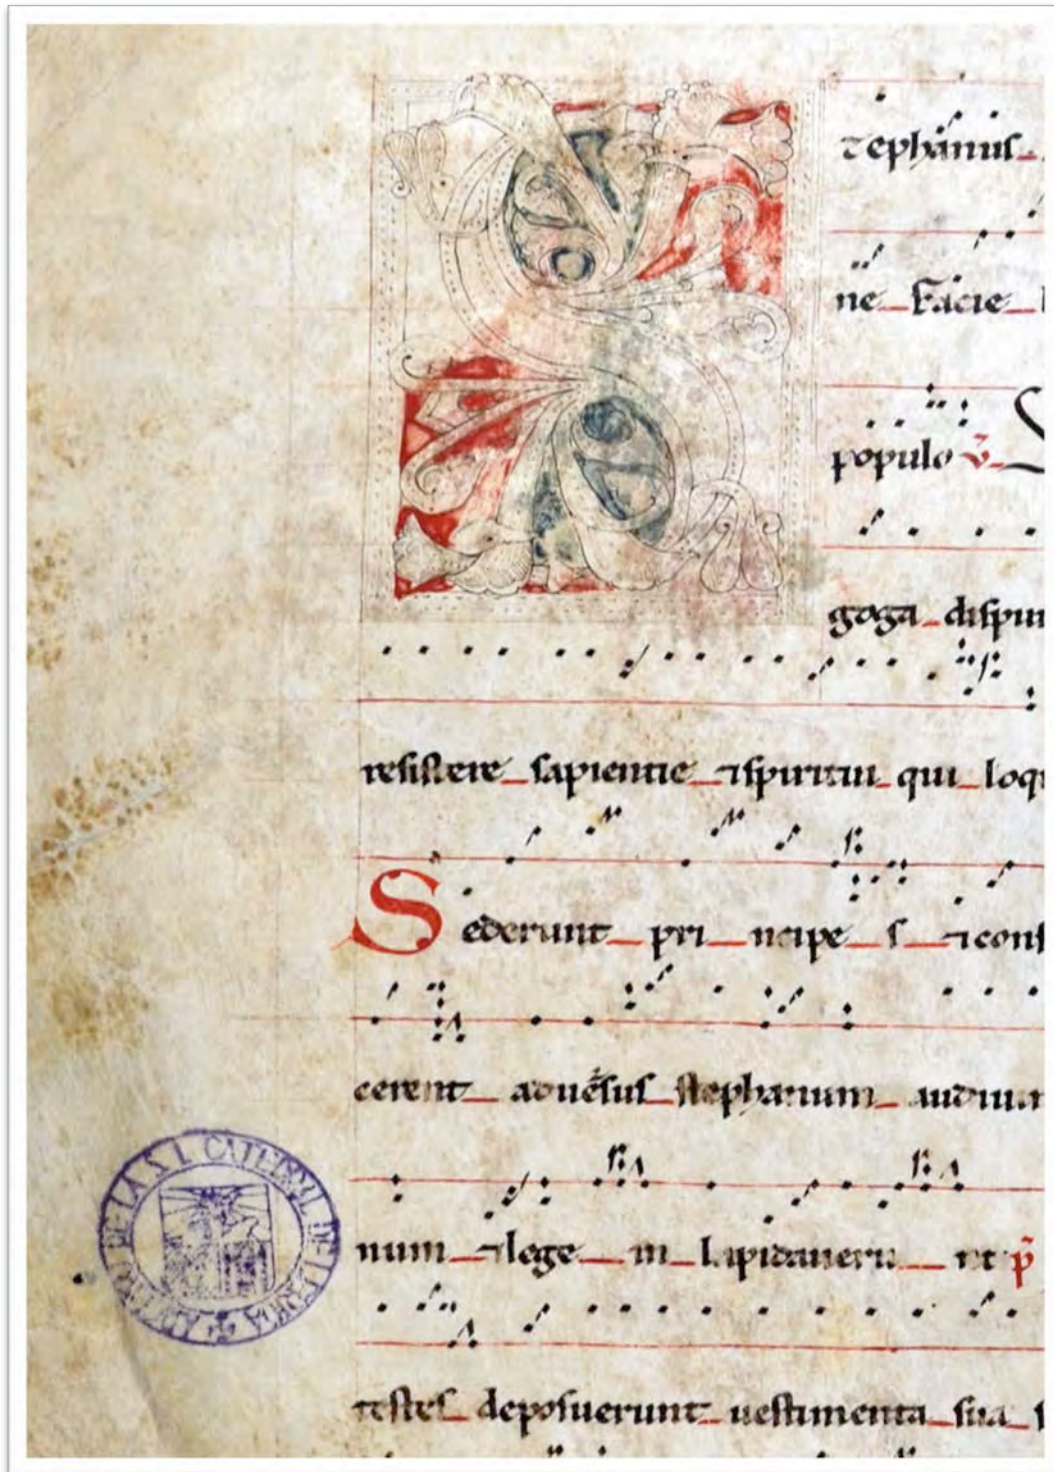 S tephanus_
ne_ facie_
populo ℣_ S
goga_ dispu
resistere_ sapientie_ ⁊spiritui_ qui_ loq
Sederunt_ pri_ ncipe_ s_ ⁊cons
cerent_ aduersus_ stephanum_ audiun
num_ ⁊lege_ in_ lapidaueru_ nt p̄
testes_ deposuerunt_ uestimenta_ sua_ s
DE LA S. I. CATEDRAL DE